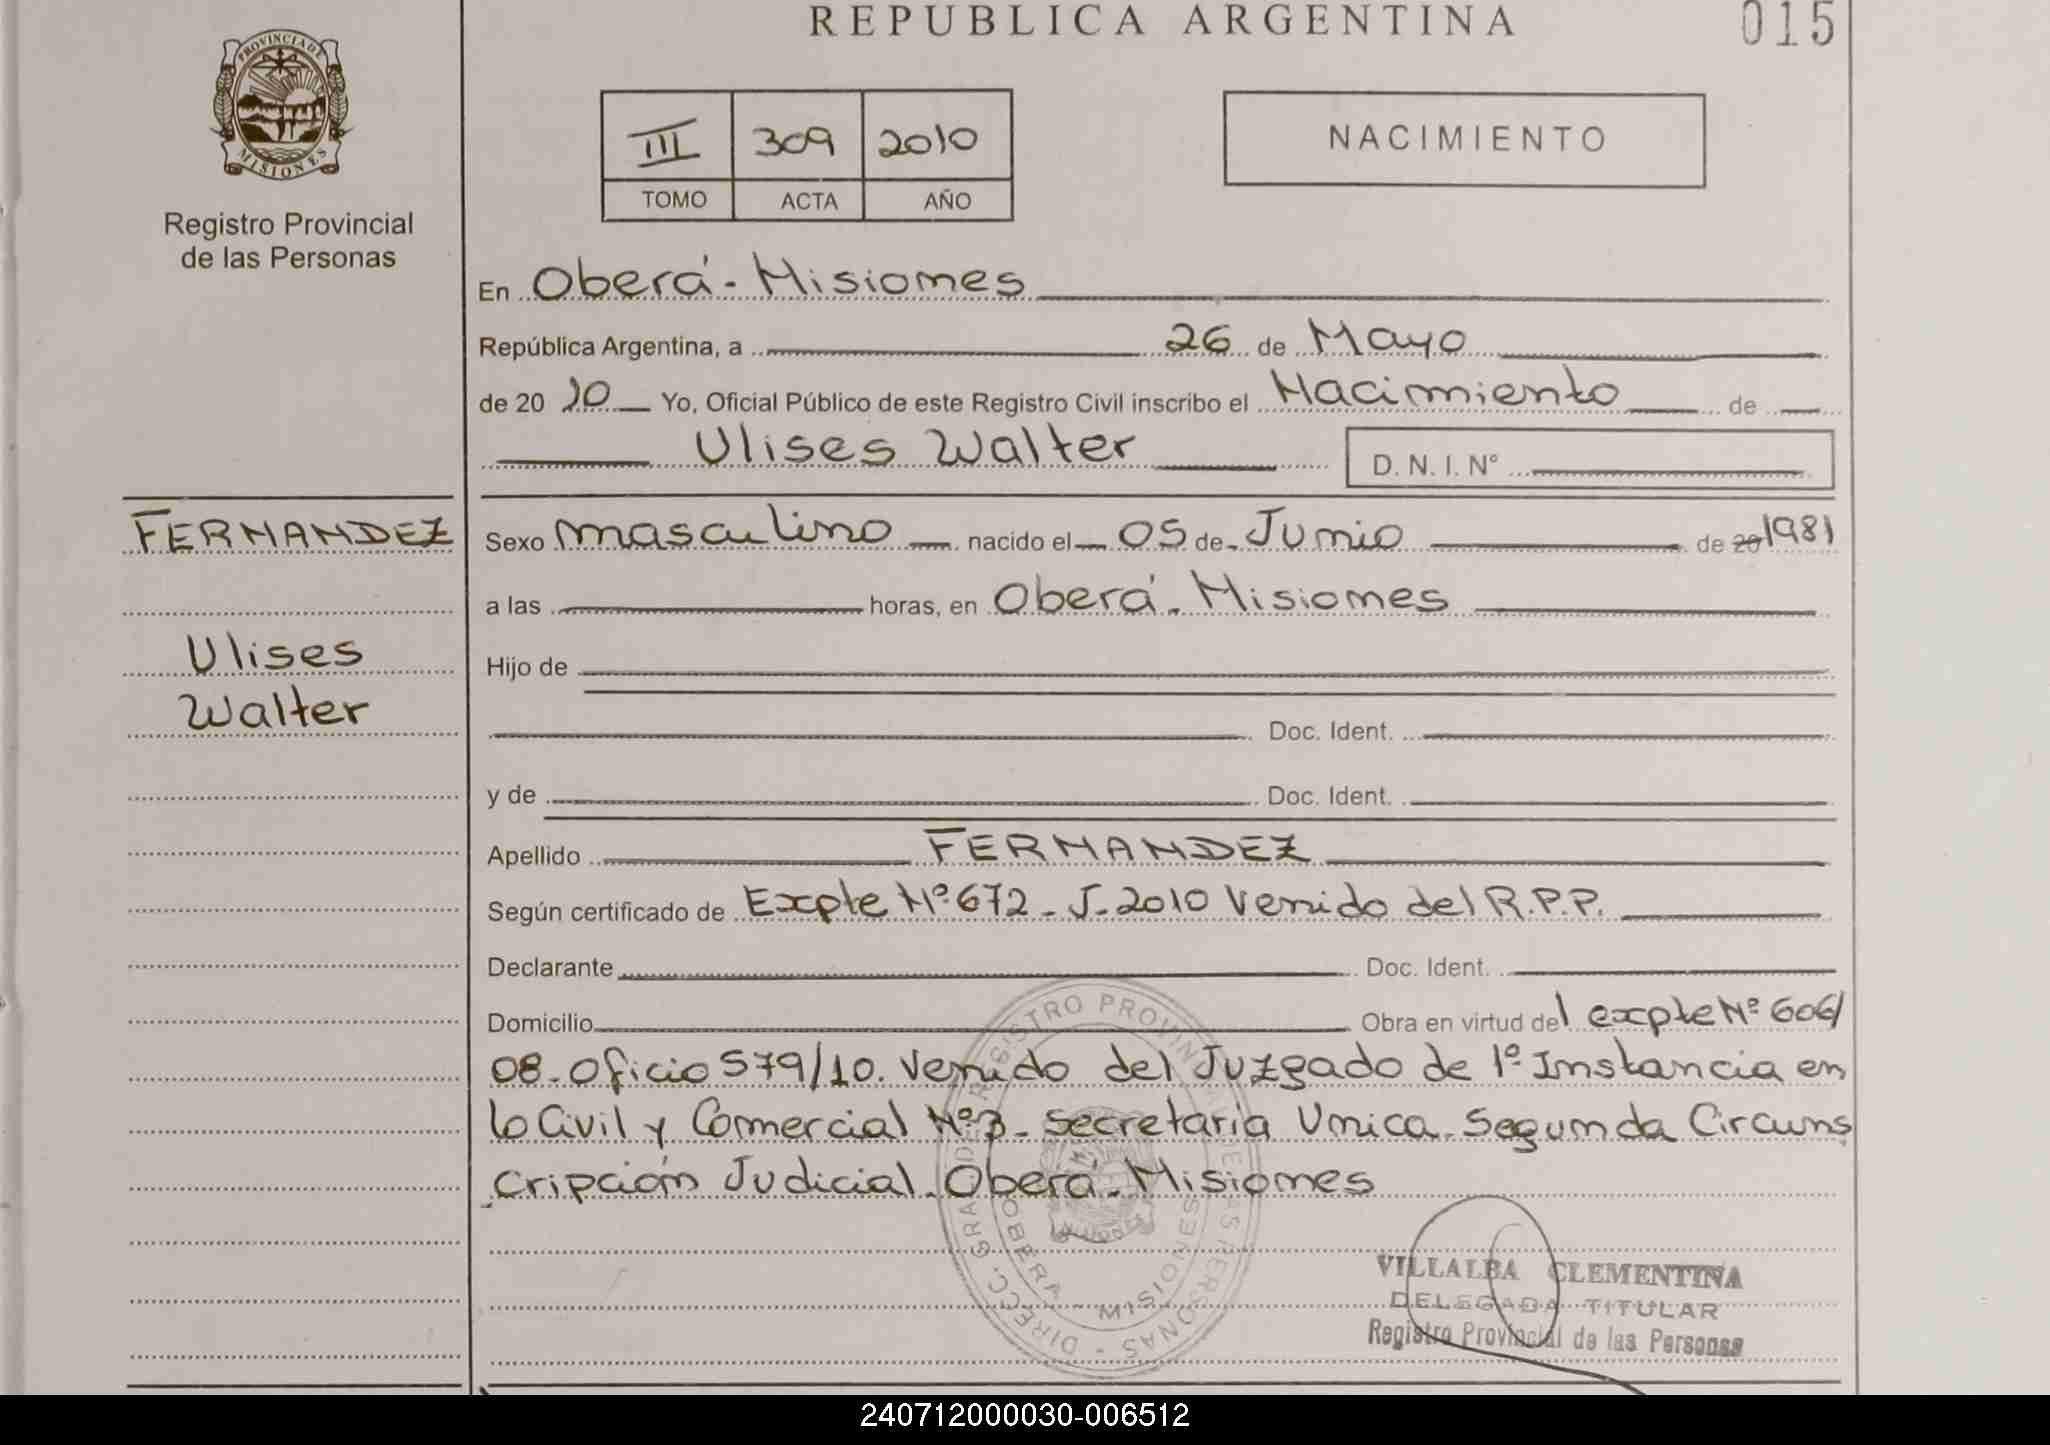 REPUBLICA ARGENTINA
015
PROVINCIA DE
MISIONES
Registro Provincial
de las Personas
III 309 2010
TOMO ACTA AÑO
NACIMIENTO
En Oberá - Misiones
República Argentina, a 26 de Mayo
de 20 10 Yo, Oficial Público de este Registro Civil inscribo el Nacimiento de
Ulises Walter D. N. I. N°
FERNANDEZ
Ulises
Walter
Sexo masculino nacido el 05 de Junio de 20 1981
a las horas, en Oberá - Misiones
Hijo de
Doc. Ident.
y de Doc. Ident.
Apellido FERNANDEZ
Según certificado de Expte Nº 672 - J - 2010 Venido del R.P.P.
Declarante Doc. Ident.
Domicilio Obra en virtud del expte Nº 606/
08 - Oficio 579/10. Venido del Juzgado de 1º Instancia en
lo Civil y Comercial Nº 3 - Secretaría Unica - Segunda Circuns
cripción Judicial - Oberá - Misiones
DIRECC. GRAL. DE REGISTRO PROVINCIAL DE LAS PERSONAS -
OBERA - MISIONES
VILLALBA CLEMENTINA
DELEGADA TITULAR
Registro Provincial de las Personas
240712000030-006512